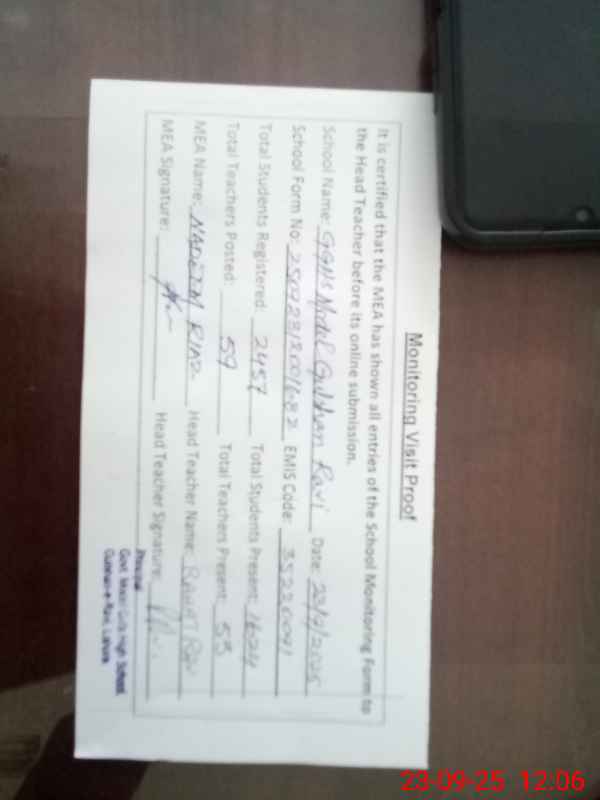 Monitoring Visit Proof
It is certified that the MEA has shown all entries of the School Monitoring Form to
the Head Teacher before its online submission.
School Name: GGHS Model Gulshan Ravi Date: 23/9/2025
School Form No: EMIS Code:
Total Students Registered: 2457 Total Students Present: 1624
Total Teachers Posted: 59 Total Teachers Present: 53
MEA Name: Head Teacher Name:
MEA Signature: Head Teacher Signature:
Principal
Govt. Model Girls High School
Gulshan-e-Ravi, Lahore
23-09-25 12:06